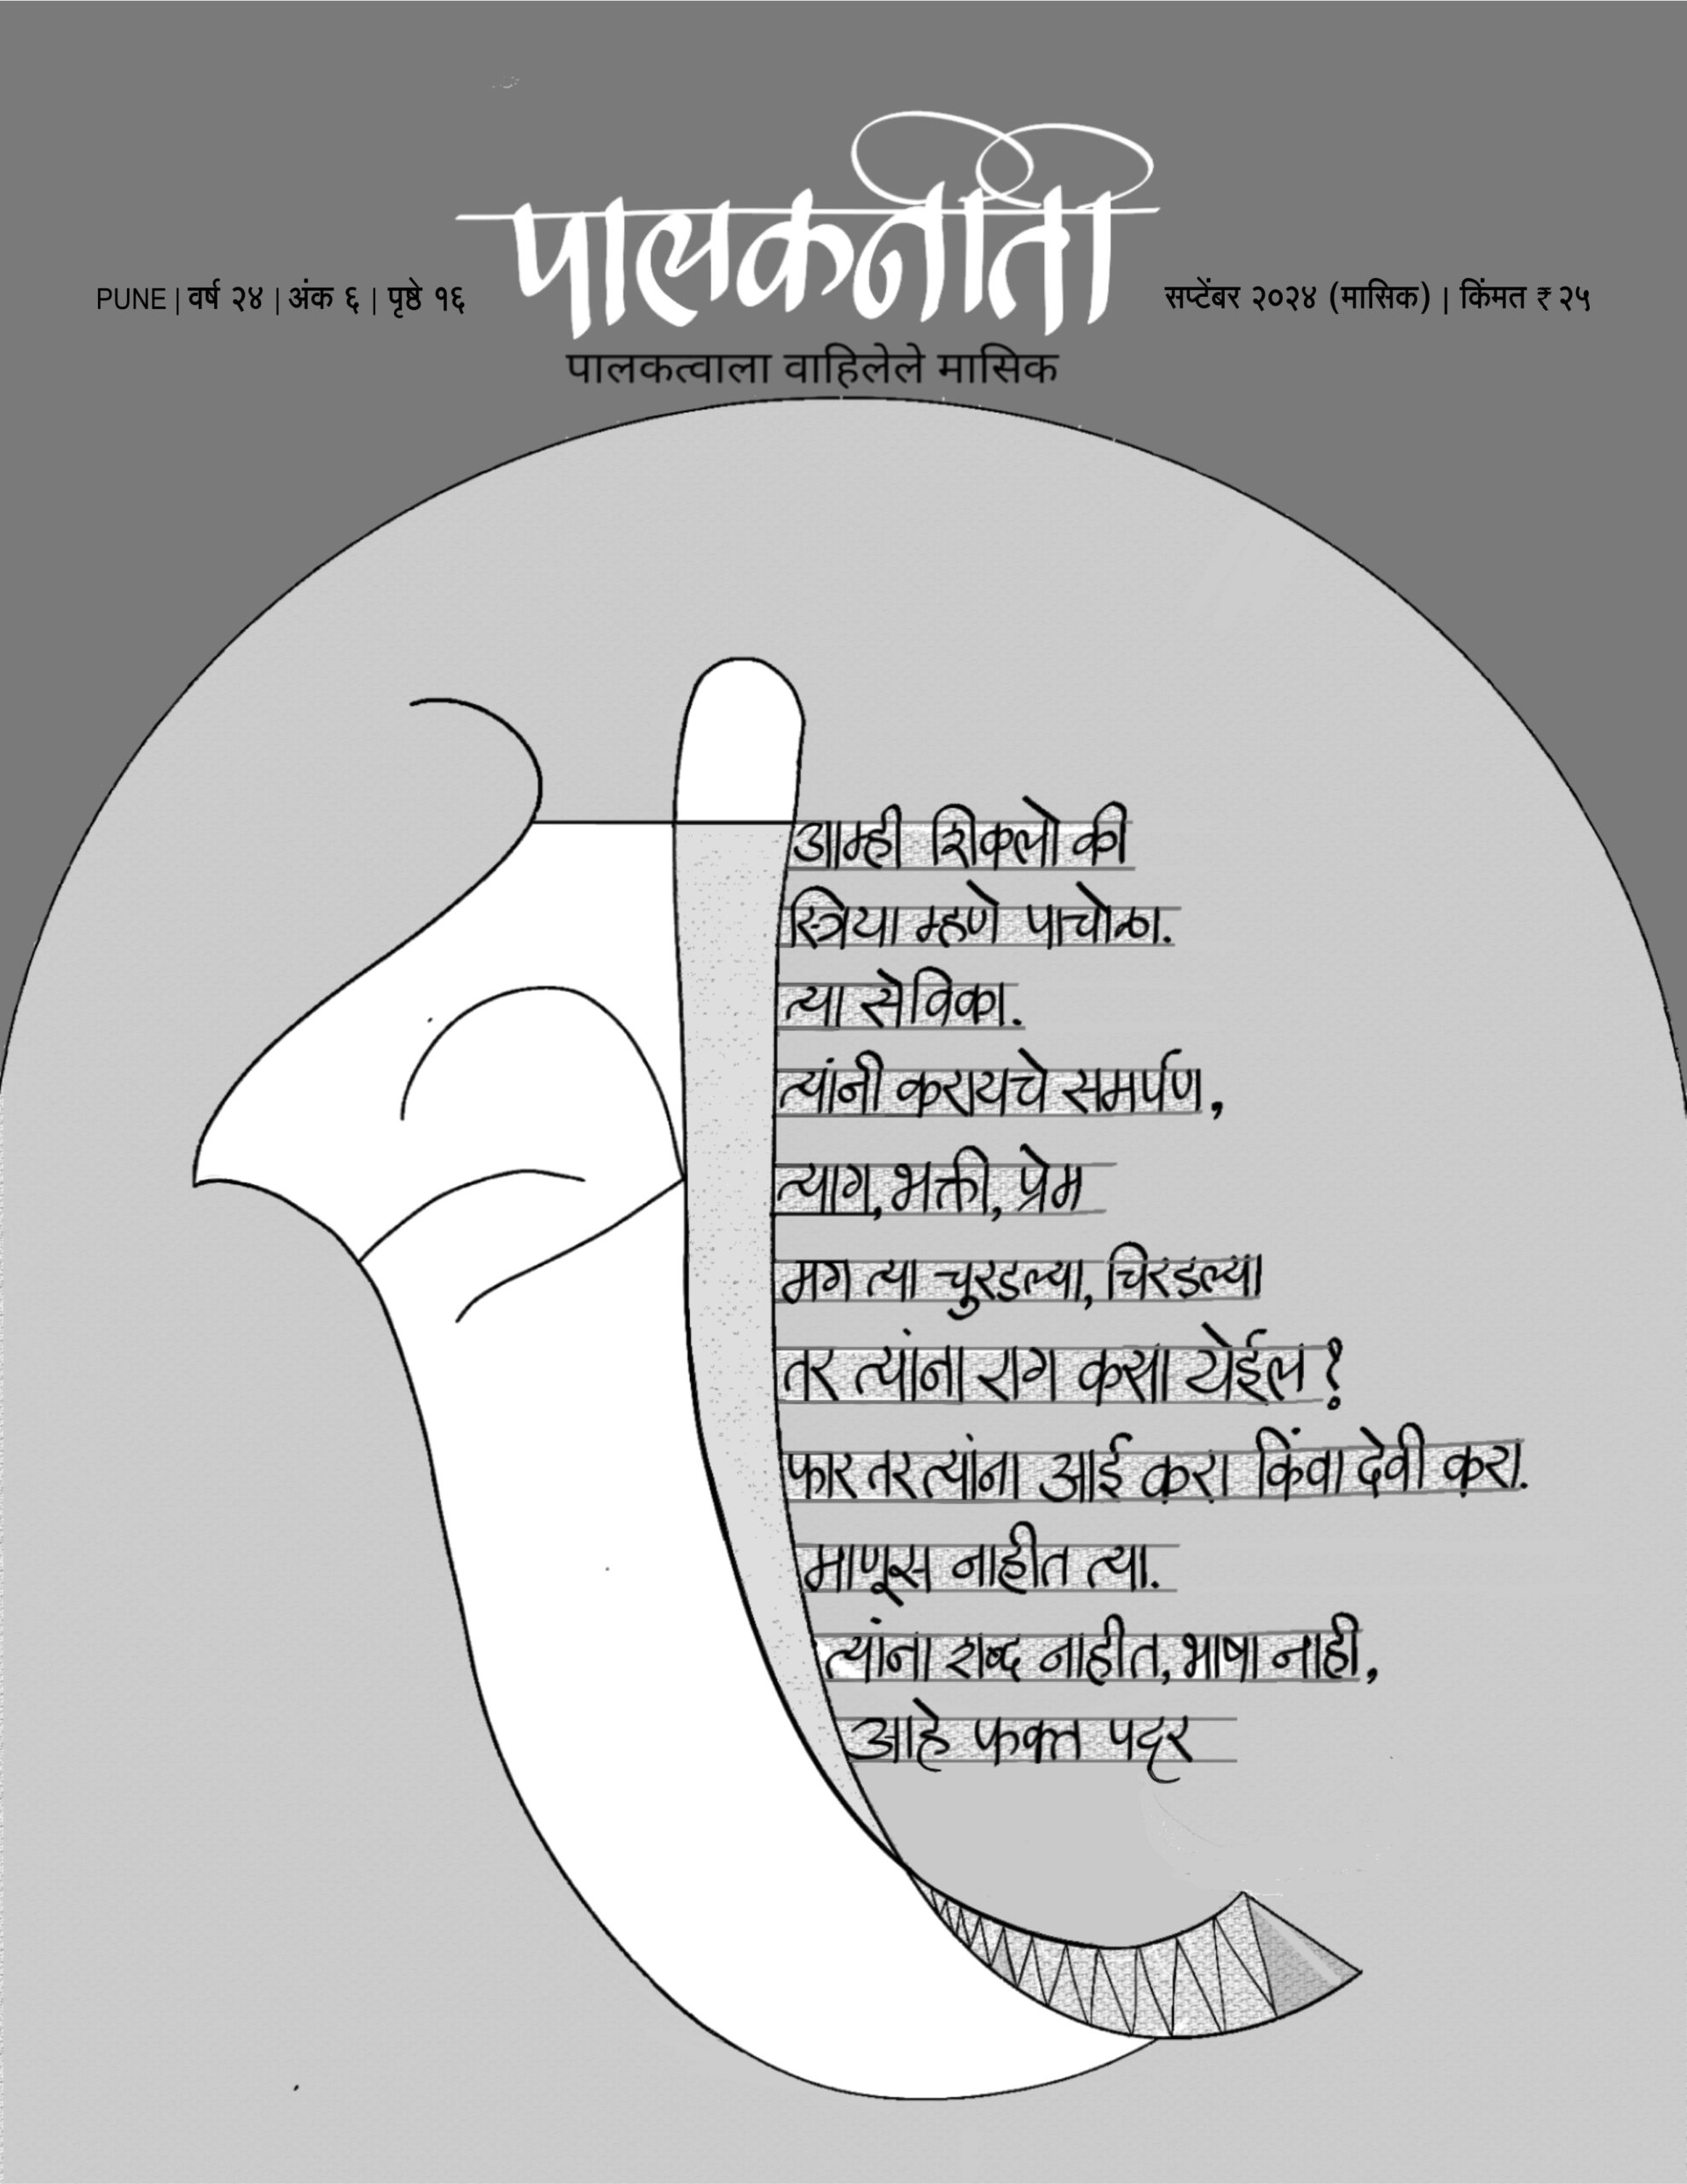 पालकनीती
PUNE | वर्ष २४ | अंक ६ | पृष्ठे १६
सप्टेंबर २०२४ (मासिक) | किंमत ₹ २५
पालकत्वाला वाहिलेले मासिक
आम्ही शिकलो की
स्त्रिया म्हणे पाचोळा.
त्या सेविका.
त्यांनी करायचे समर्पण,
त्याग, भक्ती, प्रेम
मग त्या चुरडल्या, चिरडल्या
तर त्यांना राग कसा येईल?
फार तर त्यांना आई करा किंवा देवी करा.
माणूस नाहीत त्या.
त्यांना शब्द नाहीत, भाषा नाही,
आहे फक्त पदर